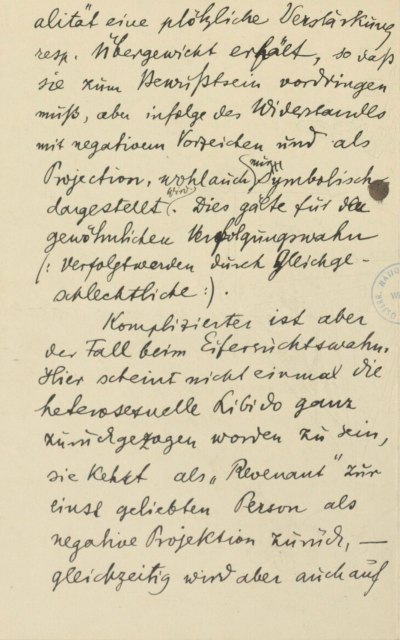 alität eine plötzliche Verstärkung
resp. Übergewicht erhält, so daß
sie zum Bewußtsein vordringen
muß, aber infolge des Widerstandes
mit negativem Vorzeichen und als
Projection, wohl auch nur symbolisch
dargestellt wird. Dies gälte für den
gewöhnlichen Verfolgungswahn
(: verfolgtwerden durch Gleichge-
schlechtliche :).
Komplizierter ist aber
der Fall beim Eifersuchtswahn.
Hier scheint nicht einmal die
heterosexuelle Libido ganz
zurückgezogen worden zu sein,
sie kehrt als „Revenant" zur
einst geliebten Person als
negative Projektion zurück, —
gleichzeitig wird aber auch auf